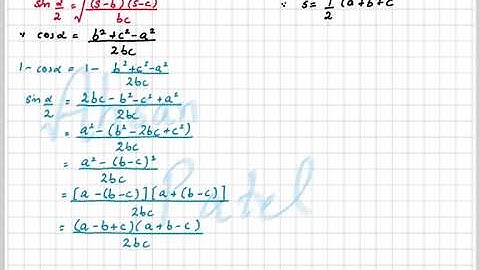 sin α/2 = √((s-b)(s-c)/bc)
∵ s = 1/2 (a+b+c
∵ cosα = (b²+c²-a²)/2bc
1-cosα = 1 - (b²+c²-a²)/2bc
sin α/2 = (2bc-b²-c²+a²)/2bc
= (a²-(b²-2bc+c²))/2bc
= (a²-(b-c)²)/2bc
= [a-(b-c)][a+(b-c)]/2bc
= (a-b+c)(a+b-c)/2bc
Ahsan
Patel